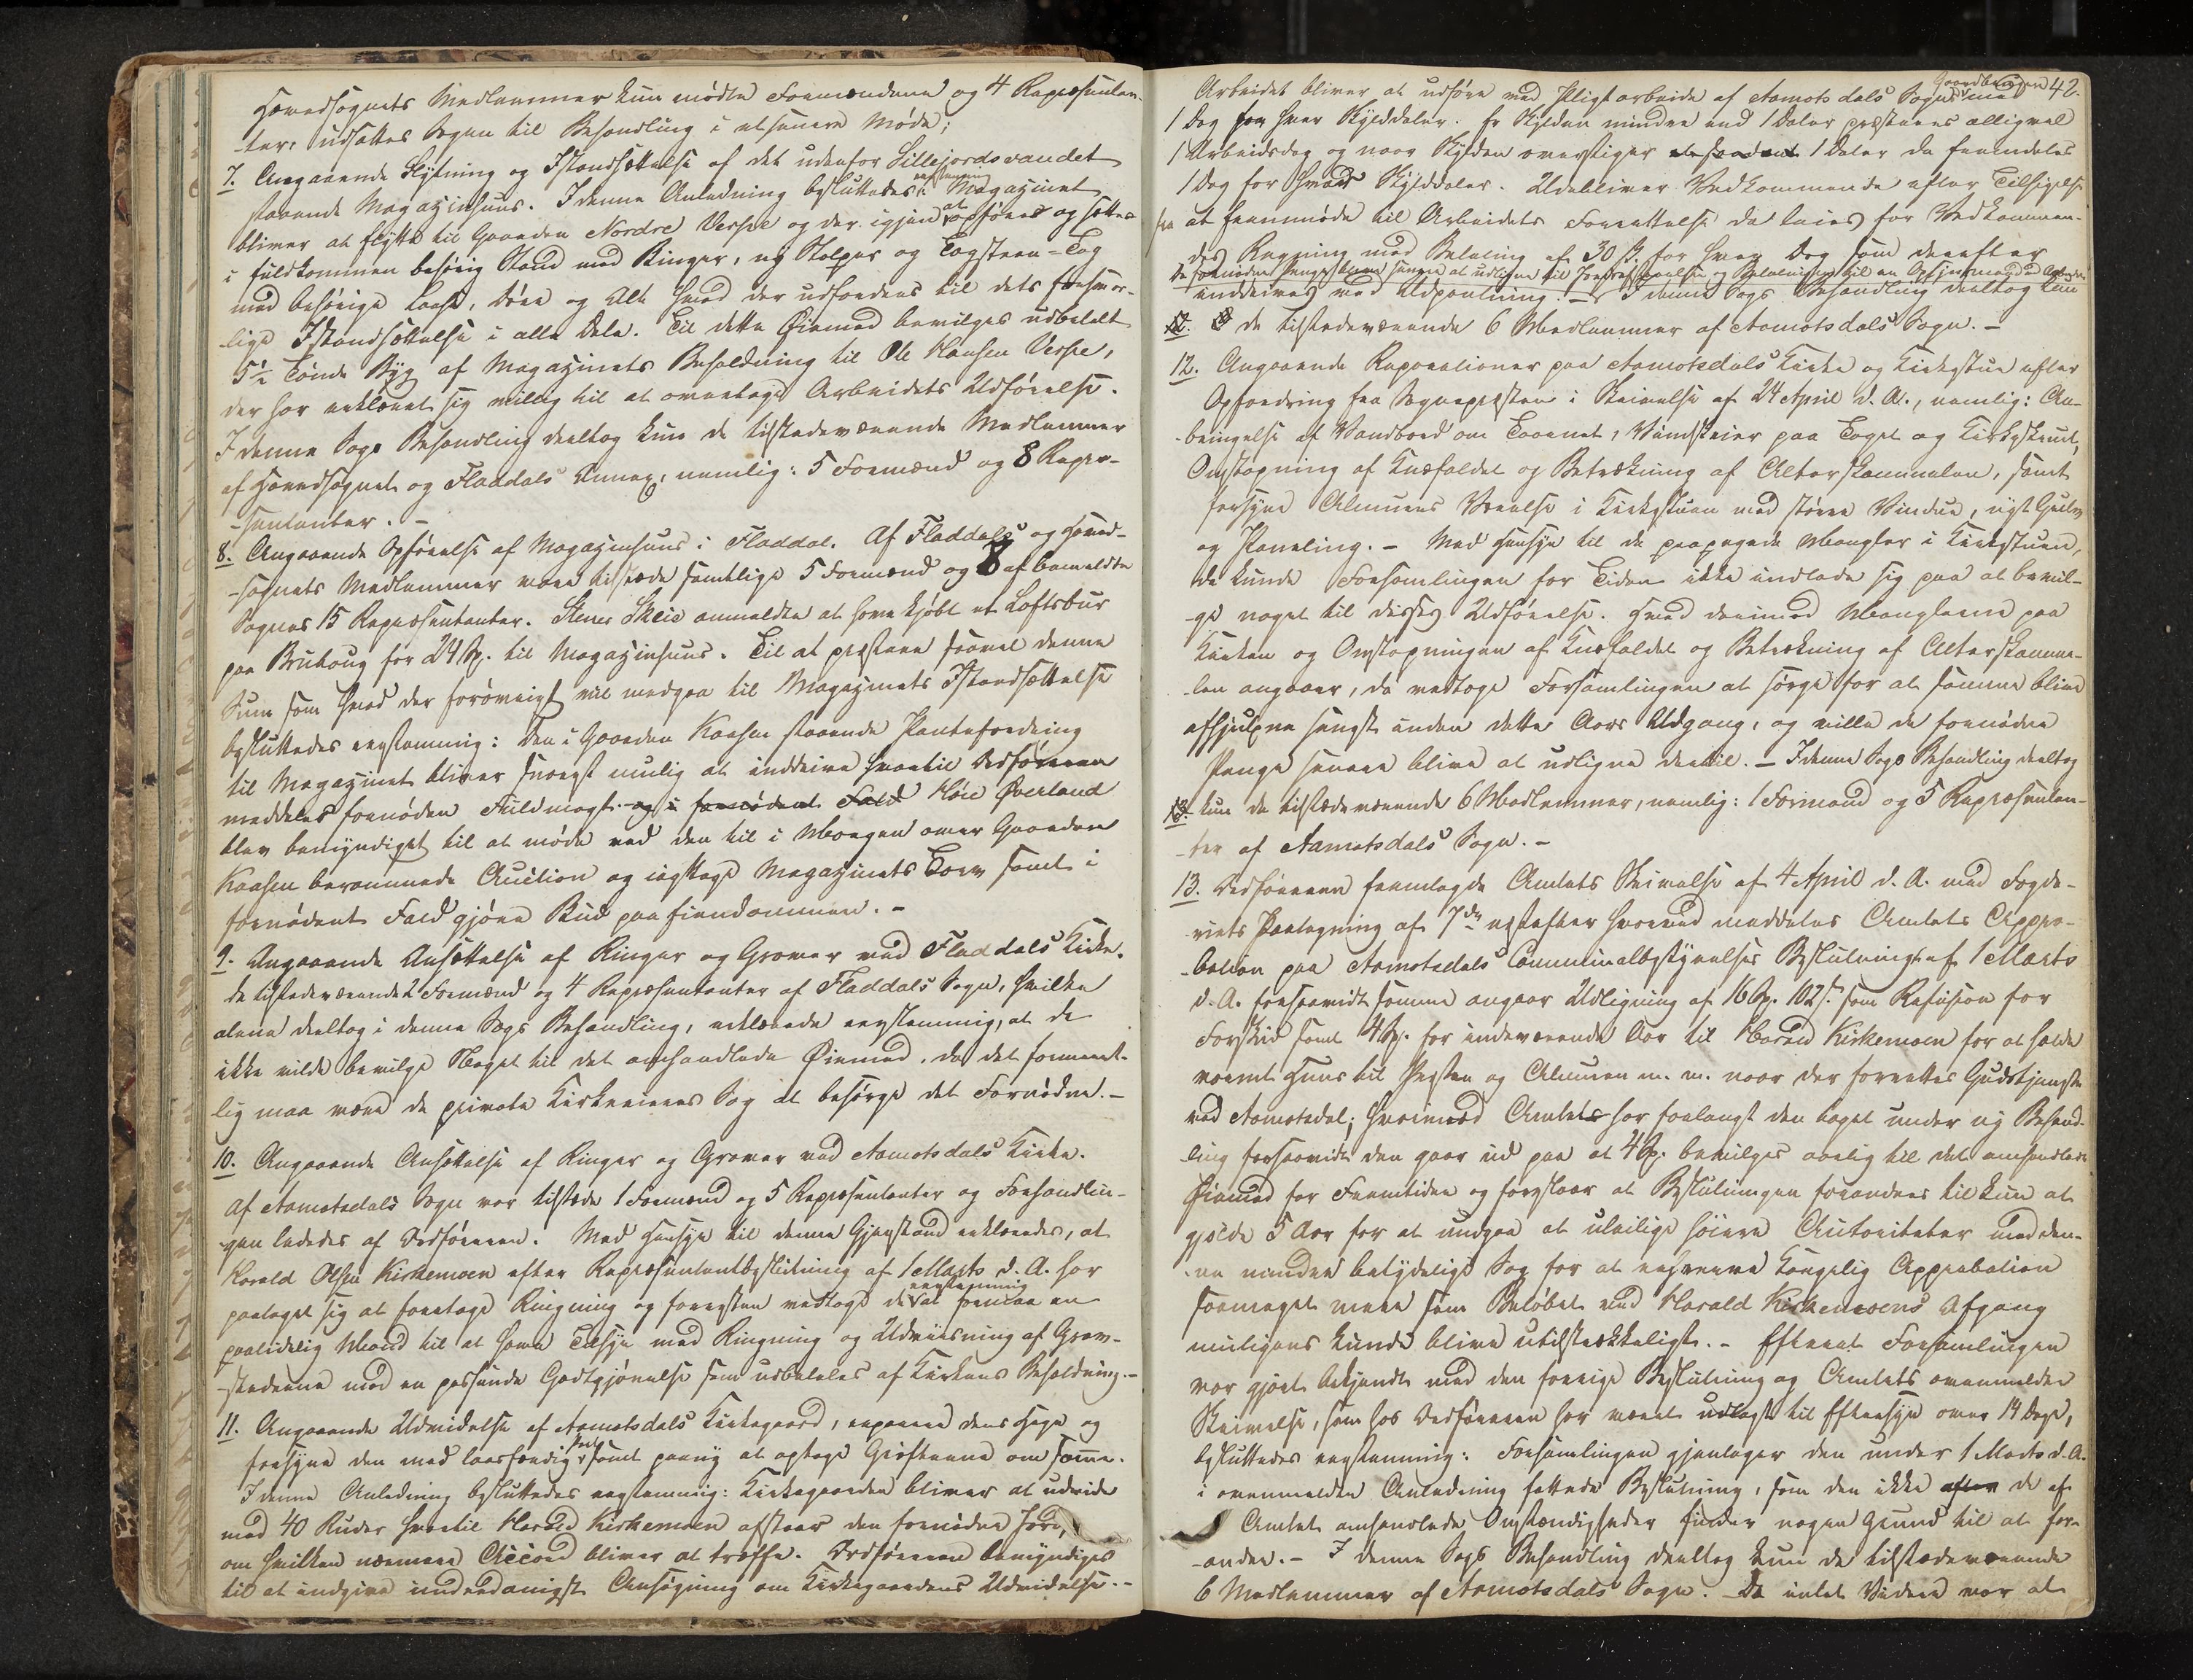 Hovedsognets Medlemmer kun mødte Formændene og 4 Repræsentan-
ter, udsattes Sagen til Behandling i et senere Møde;
7. Angaaende Flytning og Istandsættelse af det udenfor Sillejordsvandet
staaende Magazinhuus. I denne Anledning besluttedes eenstemmig: Magazinet
bliver at flytte til Gaarden Nordre Versje og der igjen at opføres og sættes
i fuldkommen behørig Stand med Ringer, ny Stolper og Tagsteen-Tag
med behørige Laase, Døre og Alt hvad der udfordres til dets forsvar-
lige Istandsættelse i alle Dele. Til dette Øiemed bevilges udbetalt
5½ Tønde Byg af Magazinets Beholdning til Ole Hansen Versje,
der har erklæret sig villig til at overtage Arbeidets Udførelse.
I denne Sags Behandling deeltog kun de tilstedeværende Medlemmer
af Hovedsognet og Fladdals Annex, nemlig: 5 Formænd og 8 Repræ-
sentanter. -
8. Angaaende Opførelse af Magazinhuus i Fladdal. Af Fladdals og Hoved-
sognets Medlemmer vare tilstede samtlige 5 Formænd og 8 af bemeldte
Sognes 15 Repræsentanter. Stener Skeie anmeldte at have kjøbt et Loftsbur
paa Bruhaug for 24 Sp. til Magazinhuus. Til at præstere saavel denne
Sum som hvad der forøvrigt vil medgaa til Magazinets Istandsættelse
besluttedes eenstemmig: den i Gaarden Kaasen staaende Pantefordring
til Magazinet bliver snarest mulig at inddrive hvortil Ordføreren
meddeles fornøden Fuldmagt og i fornødent Fald Høie Øverland
blev bemyndiget til at møde ved den til i Morgen over Gaarden
Kaasen berammede Auction og iagttage Magazinets Tarv samt i
fornødent Fald gjøre Bud paa Eiendommen. -
9. Angaaende Ansættelse af Ringer og Graver ved Fladdals Kirke.
De tilstedeværende 2 Formænd og 4 Repræsentanter af Fladdals Sogn, hvilke
alene deeltog i denne Sags Behandling, erklærede eenstemmig, at de
ikke vilde bevilge Noget til det omhandlede Øiemed, da det forment-
lig maa være de private Kirkeeieres Sag at besørge det Fornødne. -
10. Angaaende Ansættelse af Ringer og Graver ved Aamotsdals Kirke.
Af Aamotsdals Sogn var tilstede 1 Formand og 5 Repræsentanter og Forhandlin-
gen lededes af Ordføreren. Med Hensyn til denne Gjenstand erklæredes, at
Harald Olsen Kirkemoen efter Repræsentantbeslutning af 1 Marts d. A. har
paataget sig at foretage Ringning og forresten vedtoge de eenstemmig at formaa en
paalidelig Mand til at have Tilsyn med Ringning og Udviisning af Grav-
stederne mod en passende Godtgjørelse som udbetales af Kirkens Beholdning. -
11. Angaaende Udvidelse af Aamotsdals Kirkegaard, reparere dens Hage og
forsyne den med laasfærdig samt paany at optage Grøfterne om samme.
I denne Anledning besluttedes eenstemmig: Kirkegaarden bliver at udvide
med 40 Ruder hvortil Harald Kirkemoen afstaar den fornødne Jord,
om hvilken nærmere Accord bliver at træffe. Ordføreren bemyndiges
til at indgive underdanigst Ansøgning om Kirkegaardens Udvidelse. -
42.
Arbeidet bliver at udføre ved Pligtarbeide af Aamotsdals Sogns Gaardbrugere med
1 Dag fra hver Skylddaler. Er Skylden mindre end 1 Daler præsteres alligevel
1 Arbeidsdag og naar Skylden overstiger 1 Daler da fremdeles
1 Dag for hver Skylddaler. Udebliver Vedkommende efter Tilsigelse
fra at fremmøde til Arbeidets Forrettelse da leies for Vedkommen-
des Regning mod Betaling af 30 ß for hver Dag som derefter
De fornødne Penge bliver senere at udligne til og Betalningen til en Opsynsmand ved Arbeidet
inddrives ved Udpantning. - I denne Sags Behandling deeltog kun
de tilstedeværende 6 Medlemmer af Aamotsdals Sogn. -
12. Angaaende Reparationer paa Aamotsdals Kirke og Kirkestue efter
Opfordring fra Sognepræsten i Skrivelse af 24 April d. A., nemlig: An-
bringelse af Vandbord om Taarnet, Vindskeier paa Taget og Kirkeskruet,
Omstopning af Knæfaldet og Betrækning af Alterskammelen, samt
forsyne Almuens Værelse i Kirkestuen med større Vindue, nyt Gulv
og Paneling. - Med Hensyn til de paapegede Mangler i Kirkestuen,
da kunde Forsamlingen for Tiden ikke indlade sig paa at bevil-
ge noget til disses Udførelse. Hvad derimod Manglerne paa
Kirken og Omstopningen af Knæfaldet og Betrækning af Alterskamme-
len angaaer, da vedtoge Forsamlingen at sørge for at samme blive
afhjulpne senest inden dette Aars Udgang, og ville de fornødne
Penge senere blive at udligne dertil. - I denne Sags Behandling deeltog
kun de tilstedeværende 6 Medlemmer, nemlig: 1 Formand og 5 Repræsentan-
ter af Aamotsdals Sogn. -
13. Ordføreren fremlagde Amtets Skrivelse af 4 April d. A. med Fogde-
riets Paategning af 7de næstefter hvorved meddeles Amtets Appro-
bation paa Aamotsdals Communalbestyrelses Beslutning af 1 Marts
d. A. forsaavidt samme angaar Udligning af 16 Sp. 102 ß som Refusion for
Forskud samt 4 Sp. for indeværende Aar til Harald Kirkemoen for at holde
varmt Huus til Præsten og Almuen m. m. naar der forrettes Gudstjeneste
ved Aamotsdal; hvorimod Amtet har forlangt den taget under ny Behand-
ling forsaavidt den gaar ud paa at 4 Sp. bevilges aarlig til det omhandlede
Øiemed for Fremtiden og foreslaar at Beslutningen forandres til kun at
gjelde 5 Aar for at undgaa at uleilige høiere Autoriteter med den-
ne mindre betydelige Sag for at erhverve Kongelig Approbation
saameget mere som Beløbet ved Harald Kirkemoens Afgang
muligens kunde blive utilstrækkeligt. - Efterat Forsamlingen
var gjort bekjendt med den forrige Beslutning og Amtets ovenmeldte
Skrivelse, som hos Ordføreren har været udlagt til Eftersyn over 14 Dage,
besluttedes eenstemmig: Forsamlingen gjentager den under 1 Marts d. A.
i ovenmeldte Anledning fattede Beslutning, som den ikke efter de af
Amtet omhandlede Omstændigheder finder nogen Grund til at for-
andre. - I denne Sags Behandling deeltog kun de tilstedeværende
6 Medlemmer af Aamotsdals Sogn. Da intet Videre var at